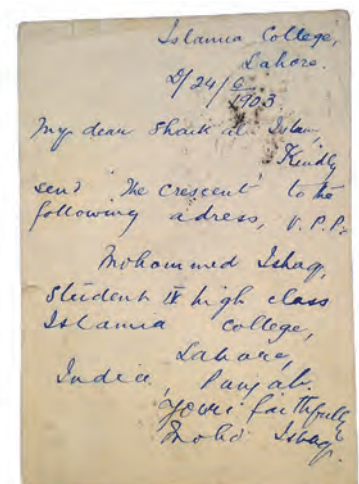 Islamia College,
Lahore.
D/24/6/1903
My dear Shaik al Islam,
Kindly
send 'The Crescent' to the
following adress, V.P.P.
Mohommed Ishaq,
Student IV high class
Islamia College,
Lahore,
India, Punjab.
Yours faithfully
Mohd Ishaq.